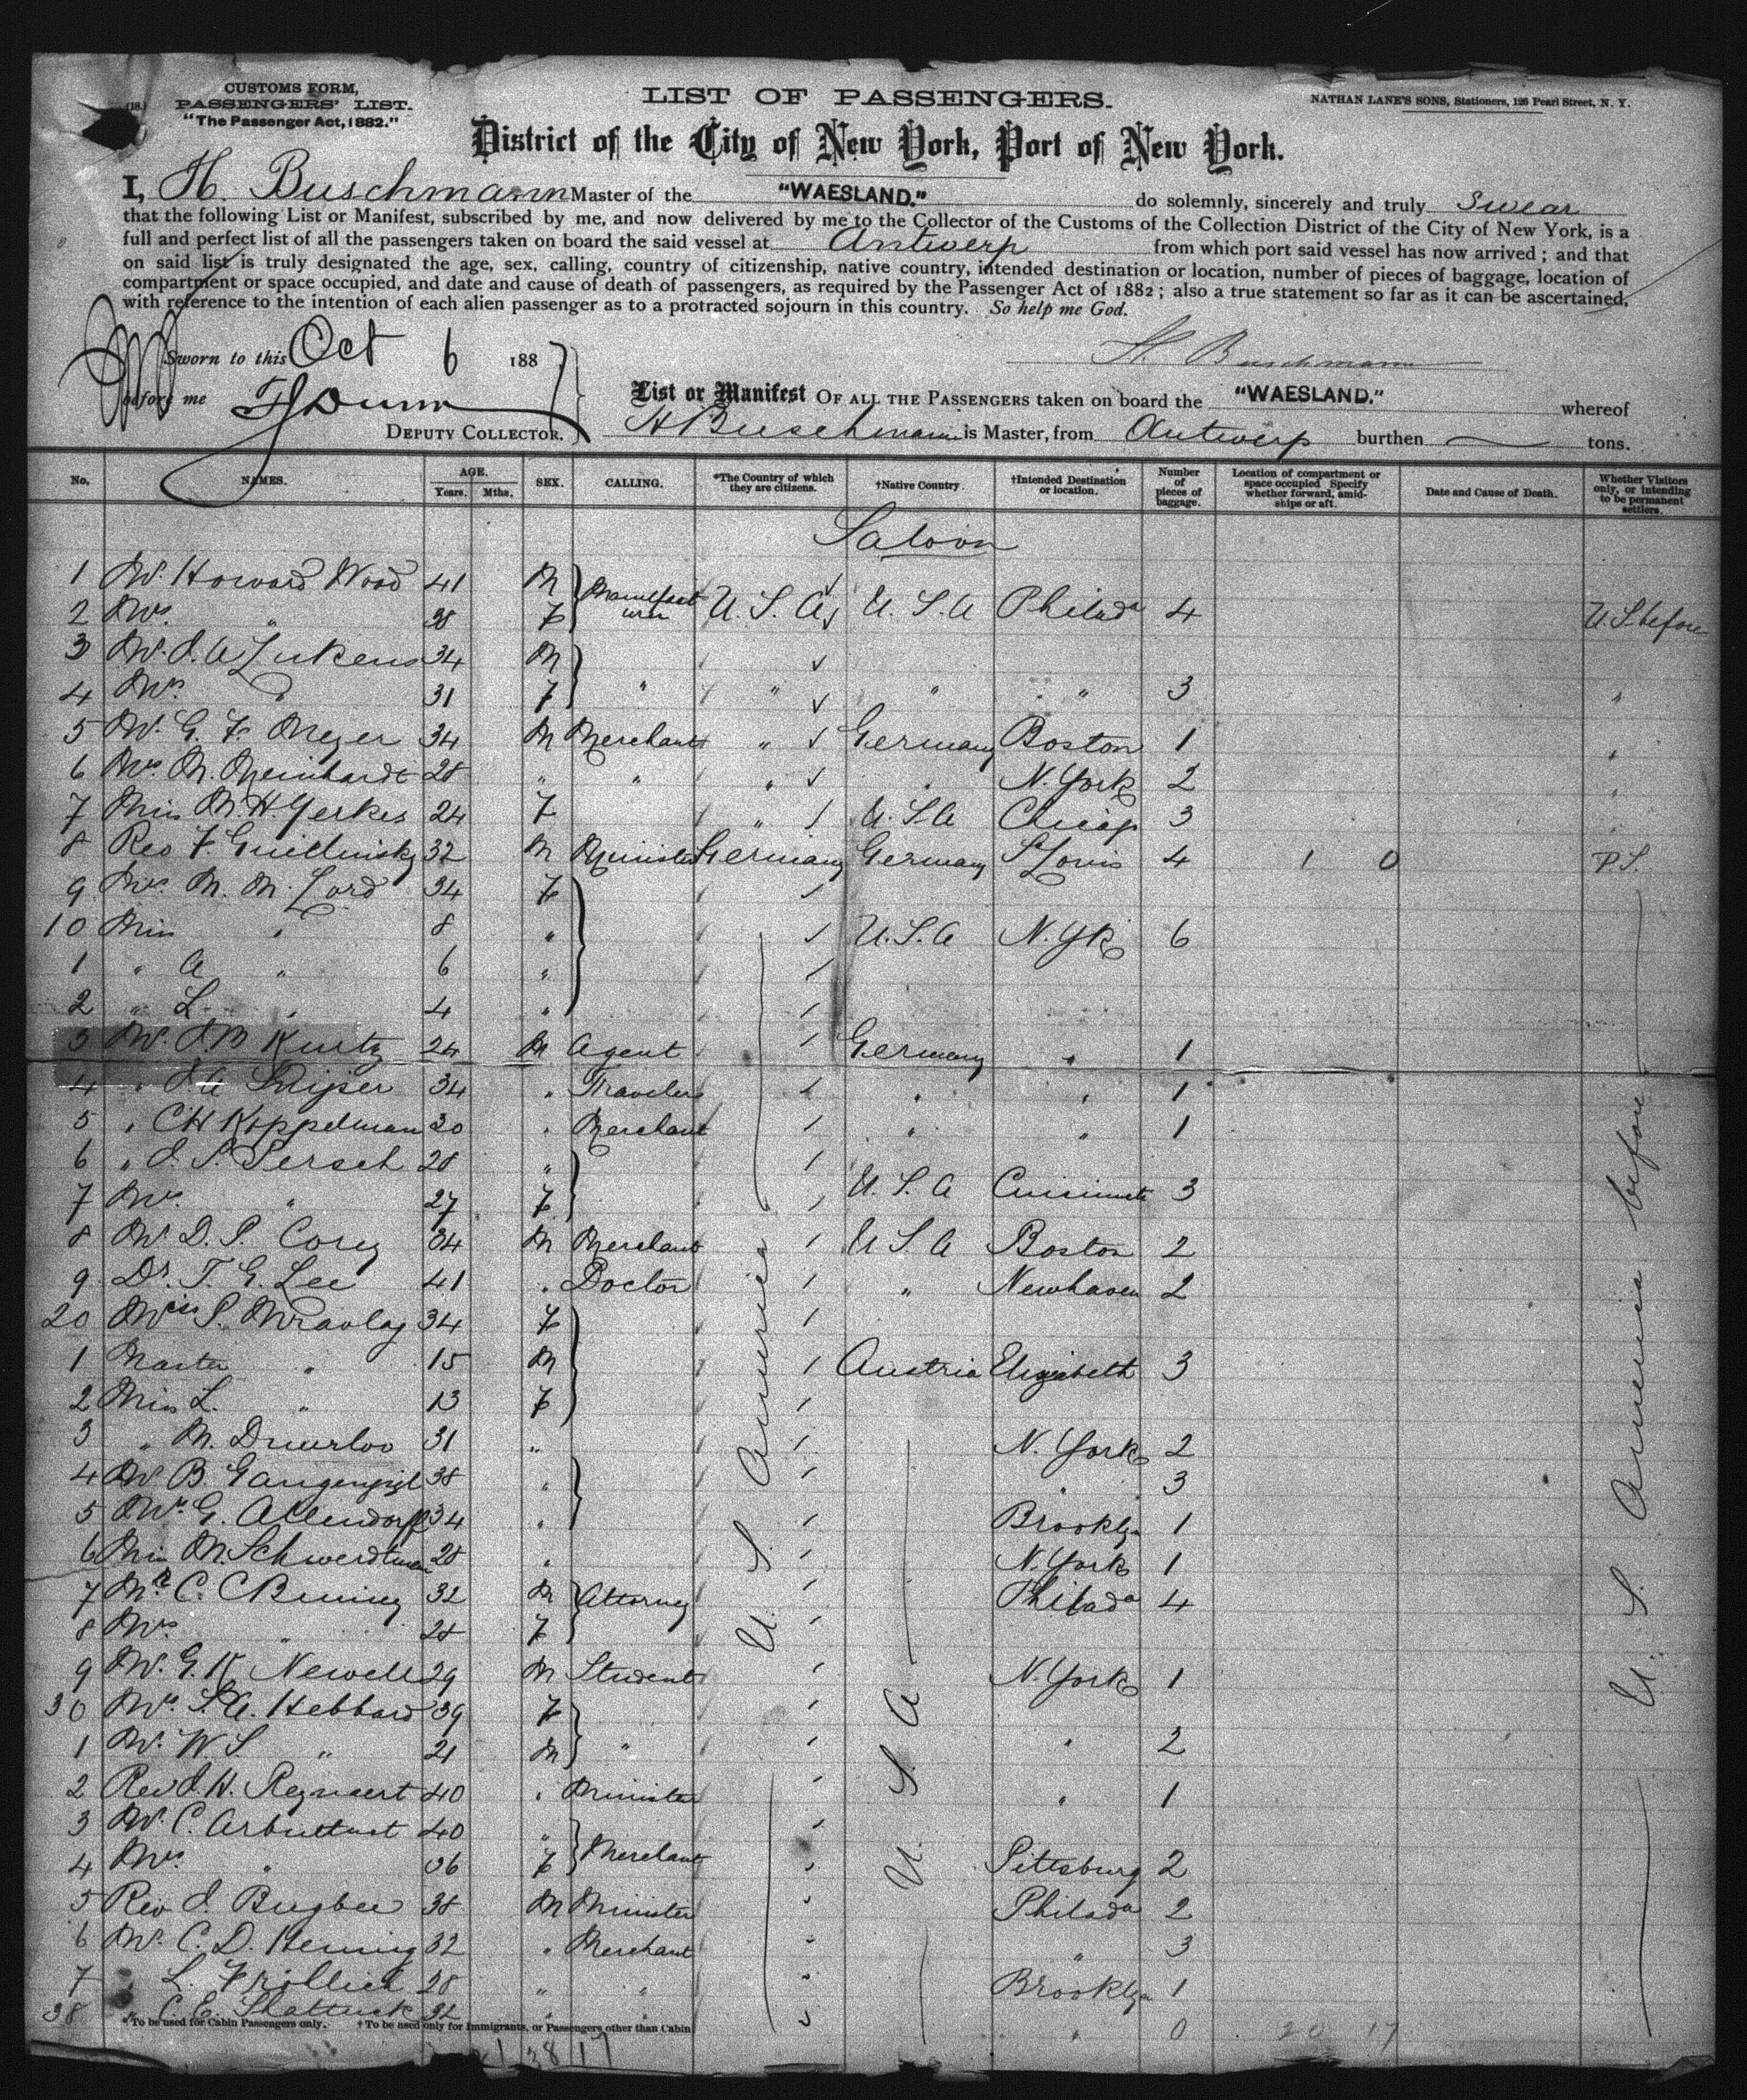 (18.)
CUSTOMS FORM,
PASSENGERS' LIST.
"The Passenger Act, 1882."
LIST OF PASSENGERS.
NATHAN LANE'S SONS, Stationers, 126 Pearl Street, N. Y.
District of the City of New York, Port of New York.
I, H. Buschmann Master of the "WAESLAND." do solemnly, sincerely and truly swear
that the following List or Manifest, subscribed by me, and now delivered by me to the Collector of the Customs of the Collection District of the City of New York, is a
full and perfect list of all the passengers taken on board the said vessel at Antwerp from which port said vessel has now arrived ; and that
on said list is truly designated the age, sex, calling, country of citizenship, native country, intended destination or location, number of pieces of baggage, location of
compartment or space occupied, and date and cause of death of passengers, as required by the Passenger Act of 1882 ; also a true statement so far as it can be ascertained,
with reference to the intention of each alien passenger as to a protracted sojourn in this country. So help me God.
Sworn to this Oct 6 1887
H Buschmann
before me Dunn
DEPUTY COLLECTOR.
List or Manifest OF ALL THE PASSENGERS taken on board the "WAESLAND." whereof
H Buschmann is Master, from Antwerp burthen — tons.
No. NAMES. AGE. Years. Mths. SEX. CALLING. *The Country of which they are citizens. †Native Country. †Intended Destination or location. Number of pieces of baggage. Location of compartment or space occupied Specify whether forward, amid-ships or aft. Date and Cause of Death. Whether Visitors only, or intending to be permanent settlers.
Saloon
1 Mr. Howard Wood 41 M Manufacturer U.S.A U.S.A Philada 4 U.S. before
2 Mrs. " 38 F
3 Mr. J. A Lukens 34 M
4 Mrs " 31 F " " " " 3 "
5 Mr. G. F. Meyer 34 M Merchant " Germany Boston 1 "
6 M. Meinhardt 28 " " " " N. York 2 "
7 Miss M. H. Yerkes 24 F " U.S.A Chicago 3 "
8 Rev F. 32 M Minister Germany Germany St Louis 4 1 0 P.S.
9 Mrs M. M. Lord 34 F
10 Miss " 8 " U.S.A N. Yk 6
1 " A " 6 "
2 " L " 4 "
3 Mr. J M Kurtz 24 M Agent Germany " 1
4 " J A 34 " Traveler " " 1
5 " C H Koppelman 30 " Merchant " " 1
6 " J. S. Persch 28 "
7 Mrs " 27 F U.S.A Cincinnati 3
8 Mr D. S. Corey 34 M Merchant U S A Boston 2
9 Dr. T. G. Lee 41 " Doctor " Newhaven 2
20 S. Mravlag 34 F
1 Master " 15 M Austria Elizabeth 3
2 Miss L. " 13 F
3 " M. 31 " N. York 2
4 B. 38 " " 3
5 G. Allendorff 34 " Brooklyn 1
6 Miss M. Schwerdtman 28 " N. York 1
7 Mr C. C 32 M Attorney Philada 4
8 Mrs " 28 F
9 Mr. G. K Newell 29 M Student N. York 1
30 Mrs S. A. Hebbard 39 F
1 Mr. W S. " 21 M " " 2
2 Rev J. H. Reynaert 40 " Minister " 1
3 Mr. C. 40 "
4 Mrs " 36 F Merchant Pittsburg 2
5 Rev J. Bugbee 38 M Minister Philada 2
6 Mr. C. D. Hening 32 " Merchant " 3
7 " L. 28 " " Brooklyn 1
38 " C. E. Shattuck 32 " " " 0 20 17
U. S. America
U. S. A
U. S. America before
*To be used for Cabin Passengers only. †To be used only for Immigrants, or Passengers other than Cabin
21 38 17